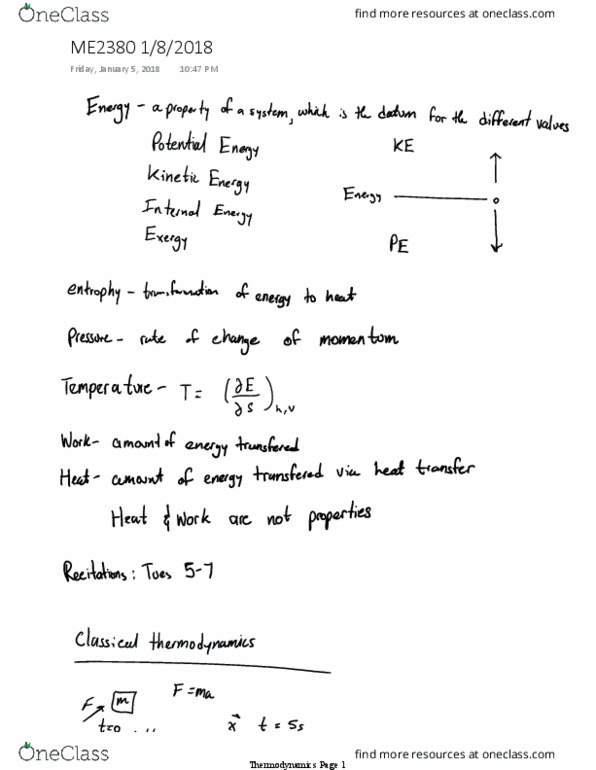 OneClass find more resources at oneclass.com
ME2380 1/8/2018
Friday, January 5, 2018 10:47 PM
Energy - a property of a system, which is the datum for the different values
Potential Energy KE
Kinetic Energy
Energy
Internal Energy
Exergy PE
entrophy - transformation of energy to heat
Pressure - rate of change of momentum
Temperature - T = (∂E/∂S)n,V
Work - amount of energy transfered
Heat - amount of energy transfered via heat transfer
Heat & Work are not properties
Recitations: Tues 5-7
Classical thermodynamics
F m F = ma
x⃗ t = 5s
OneClass find more resources at oneclass.com
Thermodynamics Page 1